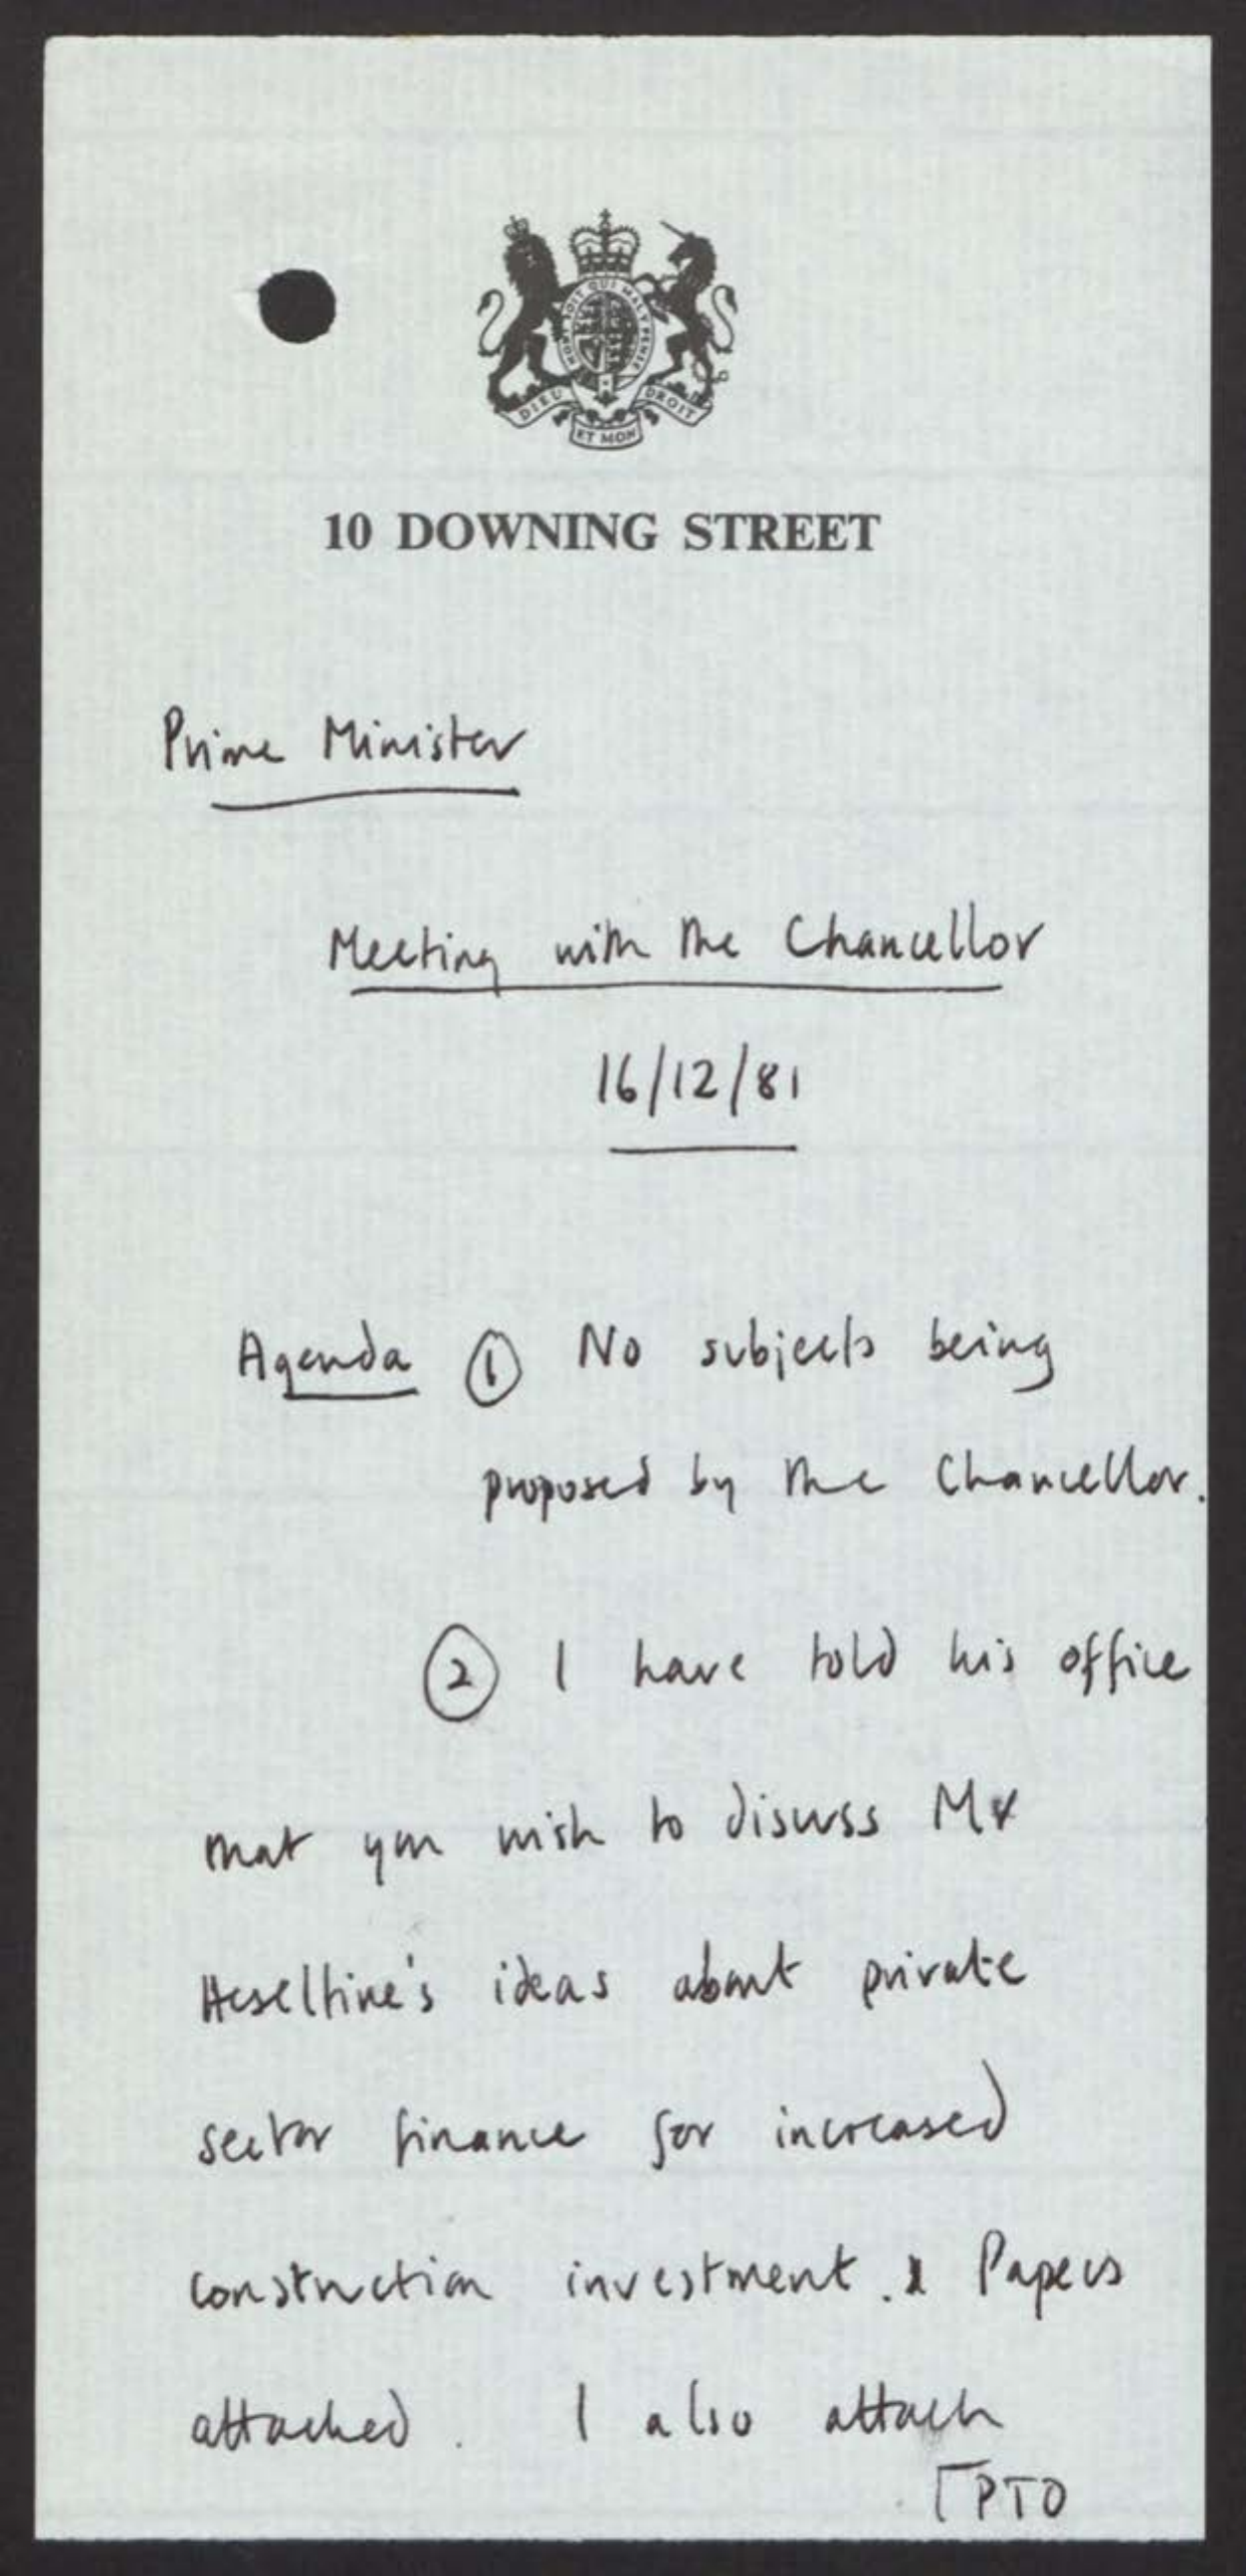 HONI SOIT QUI MAL Y PENSE
DIEU ET MON DROIT
10 DOWNING STREET
Prime Minister
Meeting with the Chancellor
16/12/81
Agenda ① No subjects being
proposed by the Chancellor.
② I have told his office
that you wish to discuss Mr
Heseltine's ideas about private
sector finance for increased
construction investment. Papers
attached. I also attach
[PTO